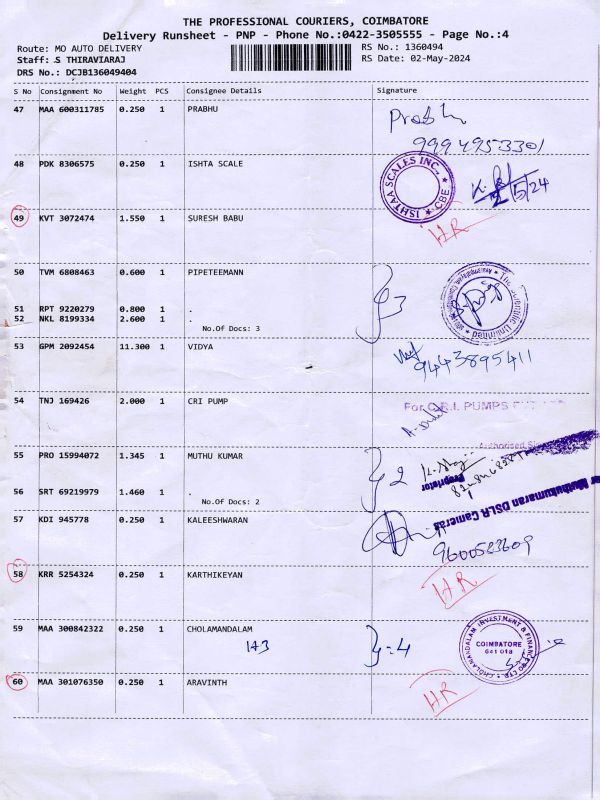 THE PROFESSIONAL COURIERS, COIMBATORE
Delivery Runsheet - PNP - Phone No.:0422-3505555 - Page No.:4
Route: MO AUTO DELIVERY RS No.: 1360494
Staff: .S THIRAVIARAJ RS Date: 02-May-2024
DRS No.: DCJB136049404
S No Consignment No Weight PCS Consignee Details Signature
47 MAA 600311785 0.250 1 PRABHU Prabhu
9994953301
48 PDK 8306575 0.250 1 ISHTA SCALE ISHTAA SCALES INC. CBE 2/5/24
49 KVT 3072474 1.550 1 SURESH BABU HR
50 TVM 6808463 0.600 1 PIPETEEMANN 3
51 RPT 9220279 0.800 1 .
52 NKL 8199334 2.600 1 .
No.Of Docs: 3
53 GPM 2092454 11.300 1 VIDYA
9443895411
54 TNJ 169426 2.000 1 CRI PUMP For C.R.I. PUMPS
Authorised
55 PRO 15994072 1.345 1 MUTHU KUMAR 2
Proprietor
56 SRT 69219979 1.460 1 .
No.Of Docs: 2
Muthukumaran DSLR Cameras
57 KDI 945778 0.250 1 KALEESHWARAN
9600583609
58 KRR 5254324 0.250 1 KARTHIKEYAN HR
59 MAA 300842322 0.250 1 CHOLAMANDALAM = 4 CHOLAMANDALAM INVESTMENT & FINANCE CO LTD. COIMBATORE 641 018
1+3
60 MAA 301076350 0.250 1 ARAVINTH HR